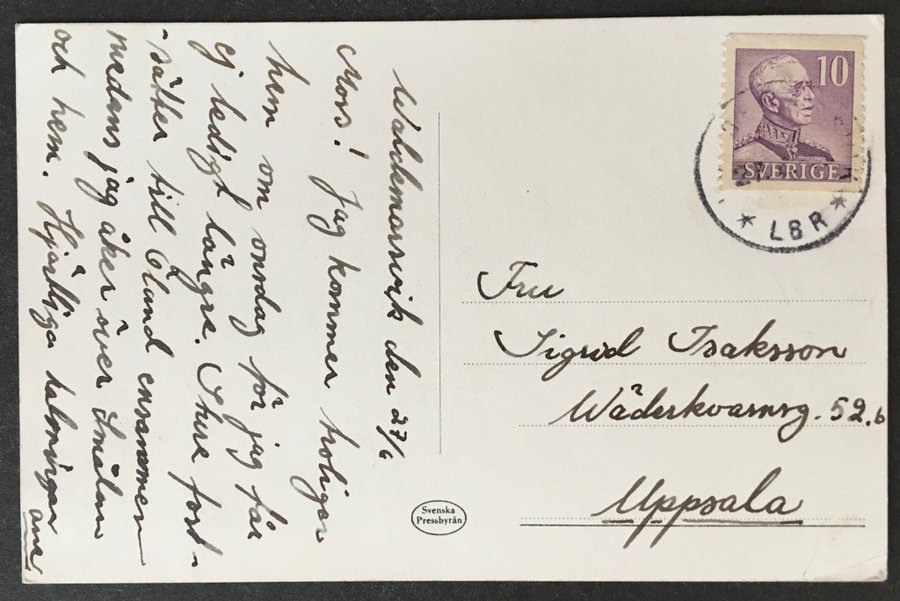 Waldemarsvik den 27/6
Mors! Jag kommer troligen
hem om onsdag för jag får
ej ledigt längre. Sture fort-
-sätter till Öland ensammen
medans jag åker över Småland
och hem. Hjärtliga hälsningar
10
SVERIGE
* LBR *
Fru
Sigrid Isaksson
Wäderkvarnsg. 52.b
Uppsala
Svenska
Pressbyrån